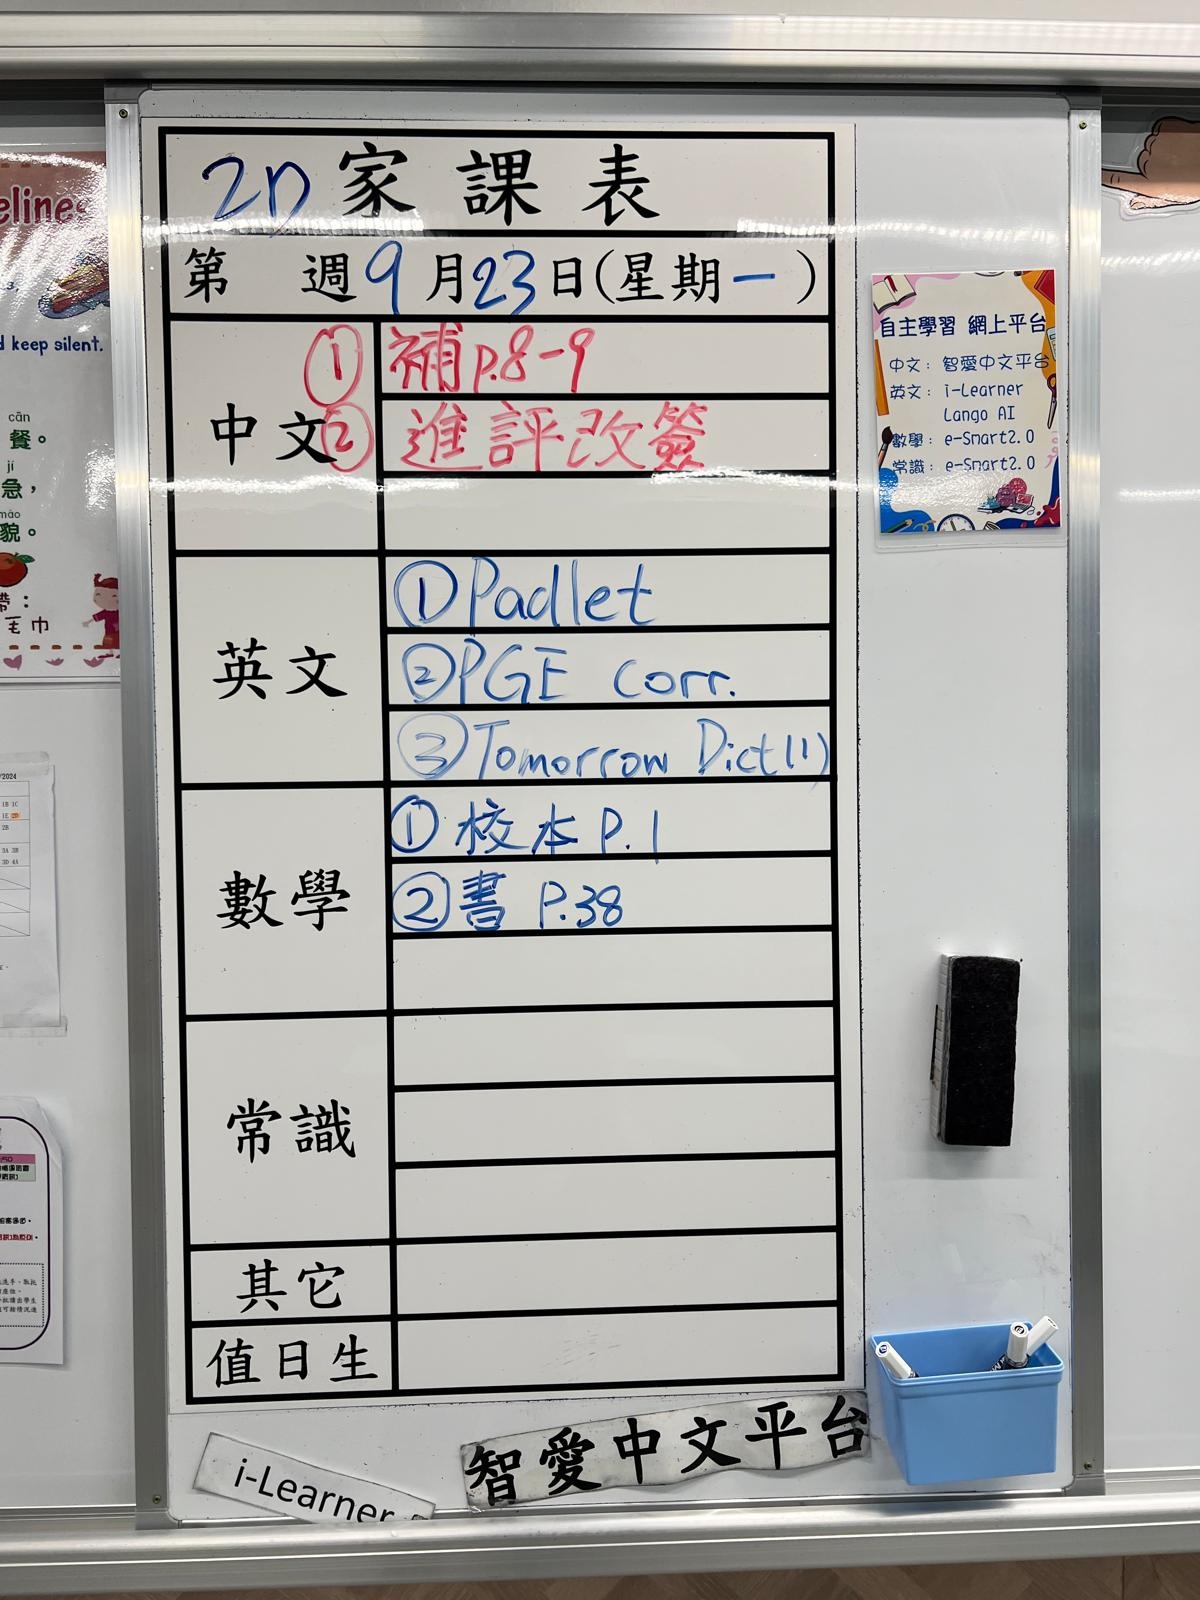 2D家課表
第 週9月23日(星期一)
中文
① 補p.8-9
② 進評改簽
英文
① Padlet
② PGE corr.
③ Tomorrow Dict(1)
數學
① 校本 P.1
② 書 P.38
常識
其它
值日生
自主學習 網上平台
中文: 智愛中文平台
英文: i-Learner
Lango AI
數學: e-Smart2.0
常識: e-Smart2.0
i-Learner
智愛中文平台
elines
d keep silent.
cān
餐。
jí
急，
mào
貌。
帶：
毛巾
/2024
1B 1C
1E 2D
2B
3A 3B
3D 4A